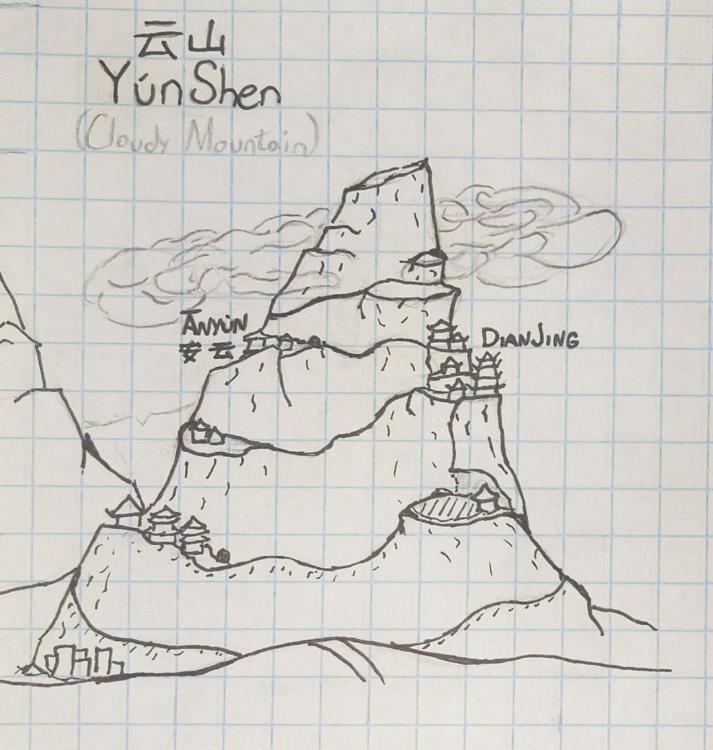 云山
YúnShen
(Cloudy Mountain)
Ānyún
安云
DIANJING